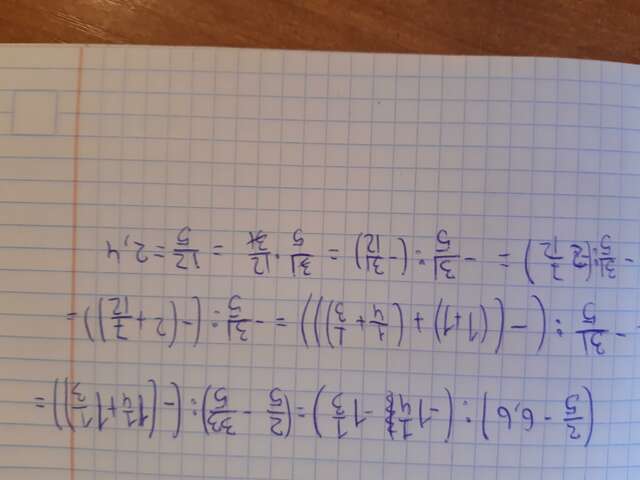 (2/5 - 6,6) : (-1 1/4 - 1 1/3) = (2/5 - 33/5) : (-(1 1/4 + 1 1/3)) =
- 31/5 : (-((1+1) + (1/4 + 1/3))) = - 31/5 : (-(2 + 7/12)) =
- 31/5 : (-2 7/12) = - 31/5 : (- 31/12) = 31/5 · 12/31 = 12/5 = 2,4